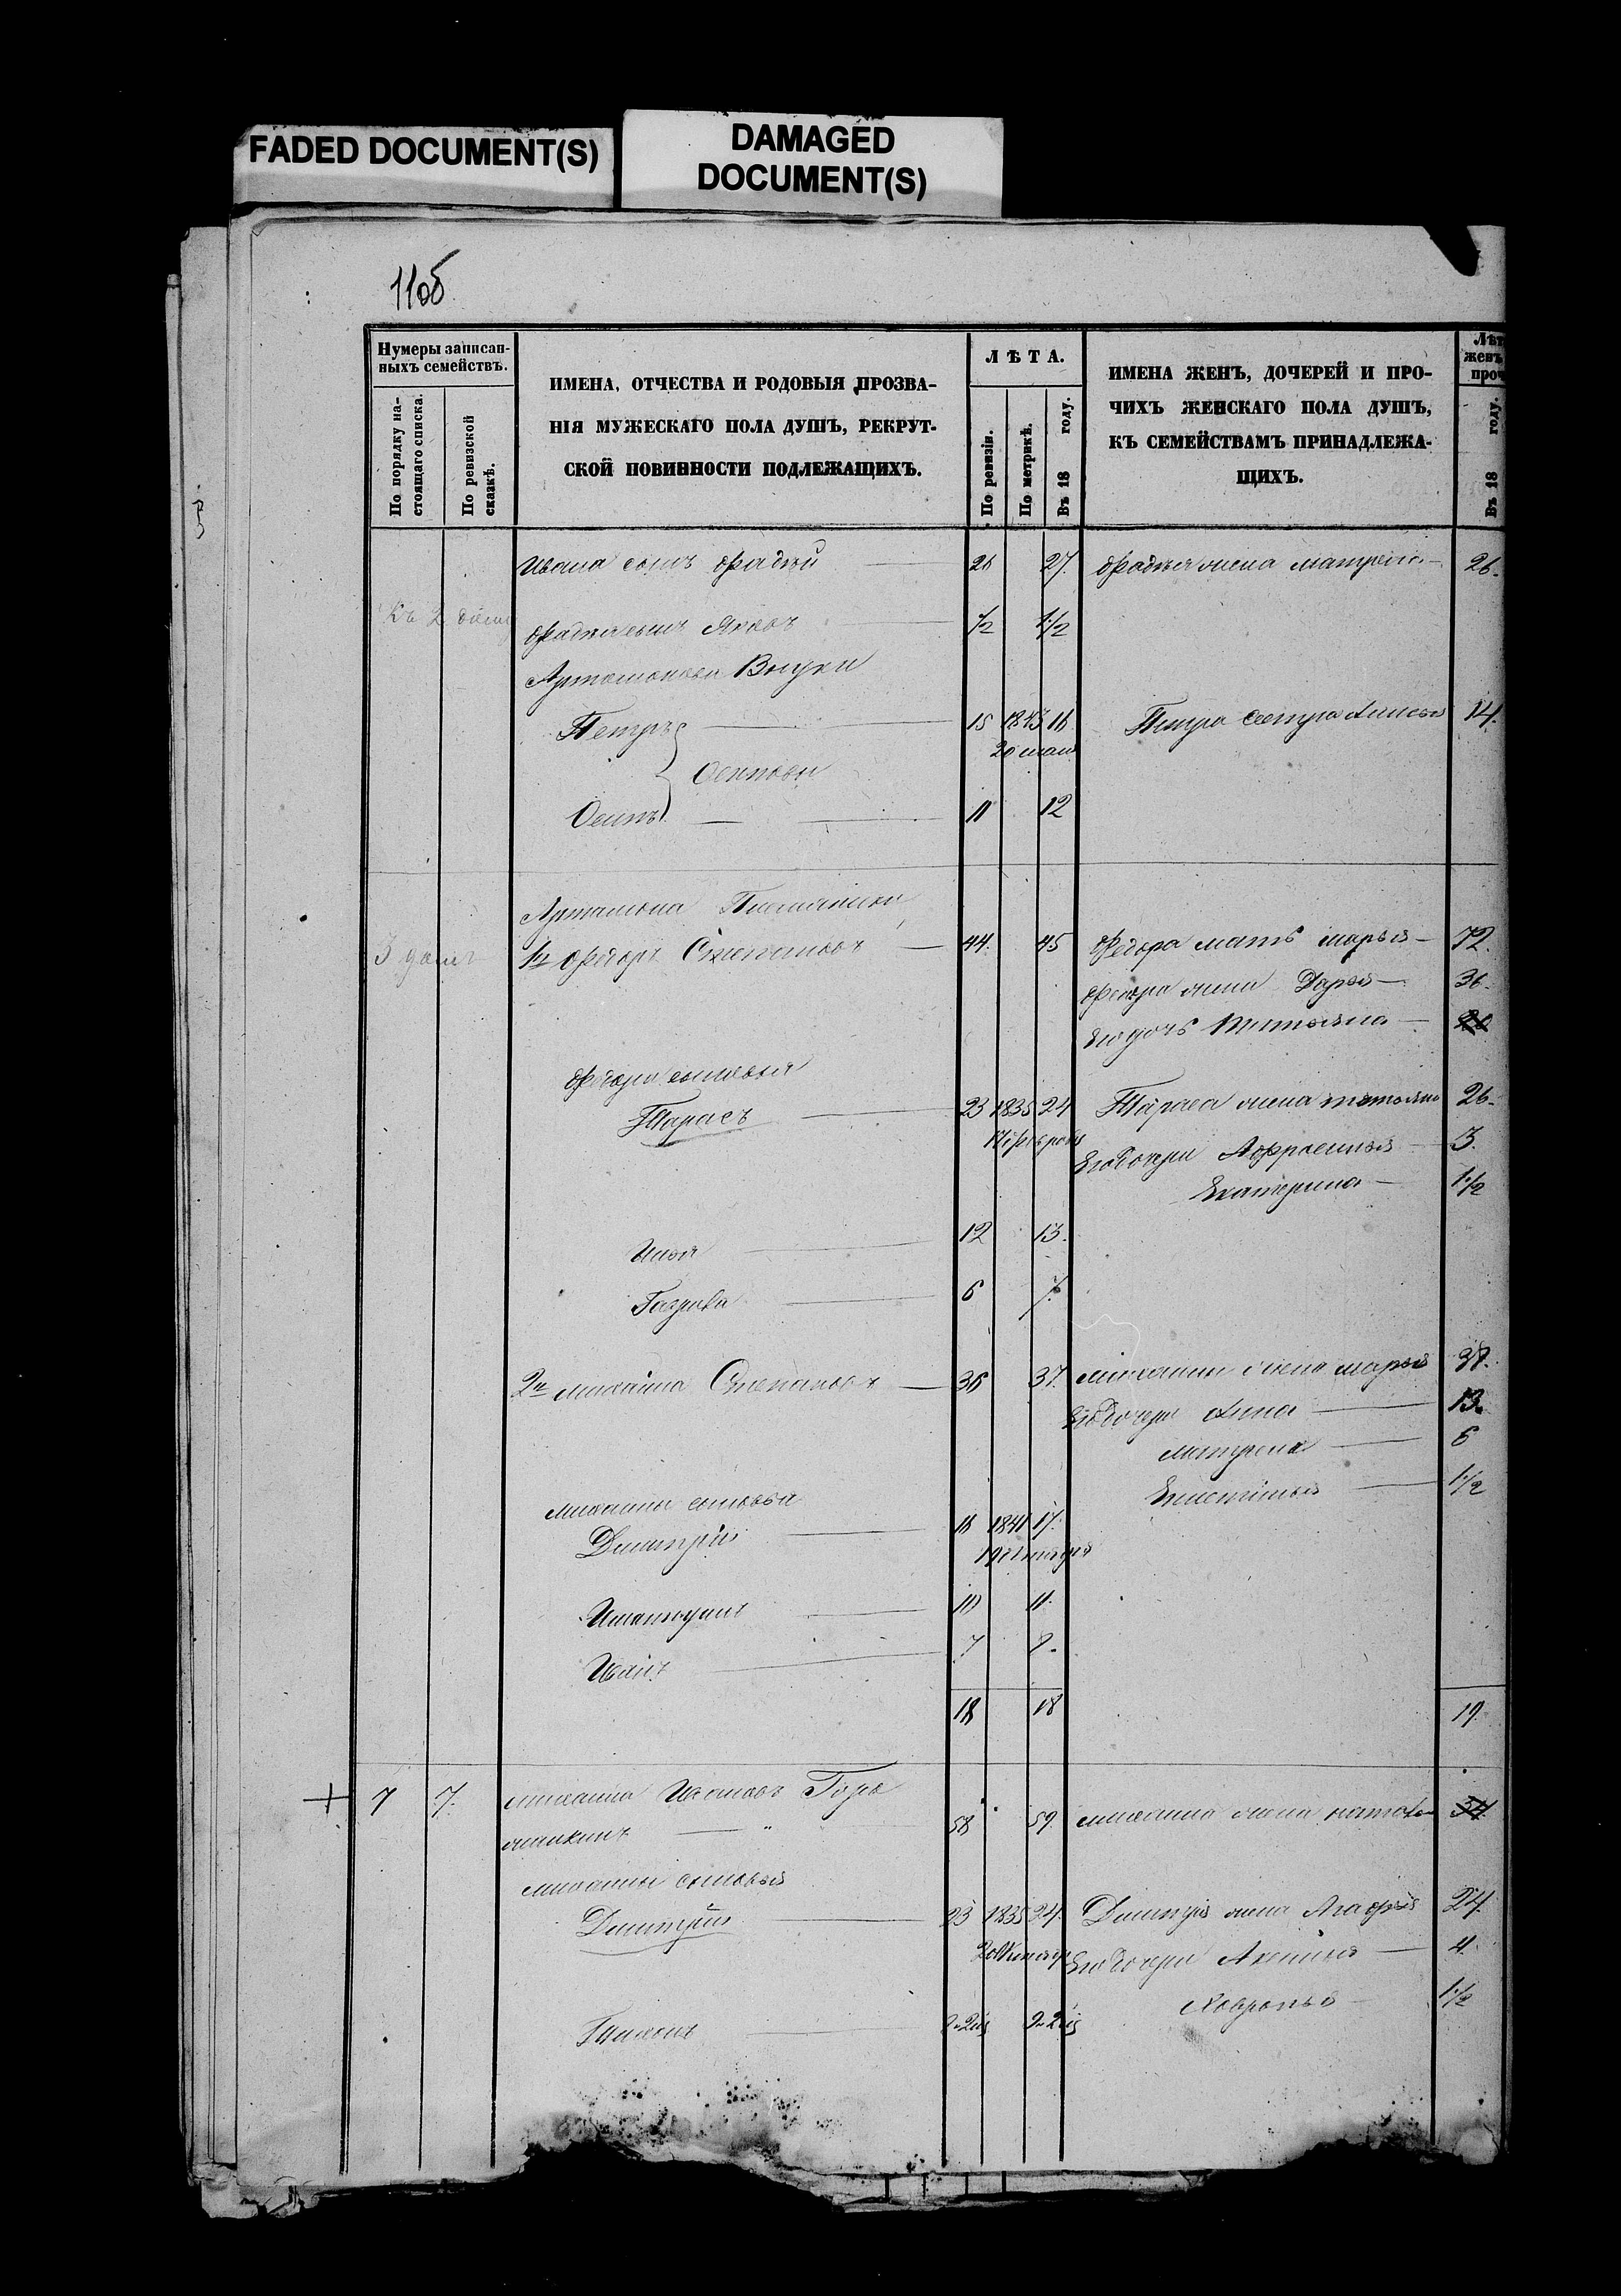 FADED DOCUMENT(S)
DAMAGED
DOCUMENT(S)
110б
Нумеры записан-
ныхъ семействъ.
По порядку на-
стоящаго списка.
По ревизской
сказкѣ.
ИМЕНА, ОТЧЕСТВА И РОДОВЫЯ ПРОЗВА-
НІЯ МУЖЕСКАГО ПОЛА ДУШЪ, РЕКРУТ-
СКОЙ ПОВИННОСТИ ПОДЛЕЖАЩИХЪ.
ЛѢТА.
По ревизіи.
По метрикѣ.
Въ 18 году.
ИМЕНА ЖЕНЪ, ДОЧЕРЕЙ И ПРО-
ЧИХЪ ЖЕНСКАГО ПОЛА ДУШЪ,
КЪ СЕМЕЙСТВАМЪ ПРИНАДЛЕЖА-
ЩИХЪ.
Лѣт
женъ
проч
Въ 18 году.
Ивана сынъ Фадѣй 26 27. Фадѣя жена Матрена 26.
Къ 2
Фадѣя сынъ Яковъ 1/2 1 1/2
Артамонова Внуки
Петръ 15 1843 16 Петра сестра 14.
20 мая
Осиповы
Осипъ 11 12
Артамона Племянники
3 1й Федоръ Степановъ 44. 45 Федора мать Марья 72.
Федора жена Дарья 36.
Его дочь Татьяна 20
Федора сыновья
Тарасъ 23 1835 24 Тараса жена Татьяна 26.
Его дочери 3.
Екатерина 1 1/2
12 13.
Илья
Гаврила 6 7.
2й Михаила Степановъ 36 37. Михаилы жена Марья 38.
Его дочери Анна 13.
Матрена 6
1 1/2
Михаилы сыновья
Дмитрій 16 1841 17.
10 11.
Иванъ 7 8.
18 18 19
7 7. Михаила Ивановъ
58 59. Михаила жена 54
Михаилы сыновья
Дмитрій 23 1835 24. Дмитрія жена Агафья 24.
Его дочери 4.
Ховронья 1 1/2
Тихонъ